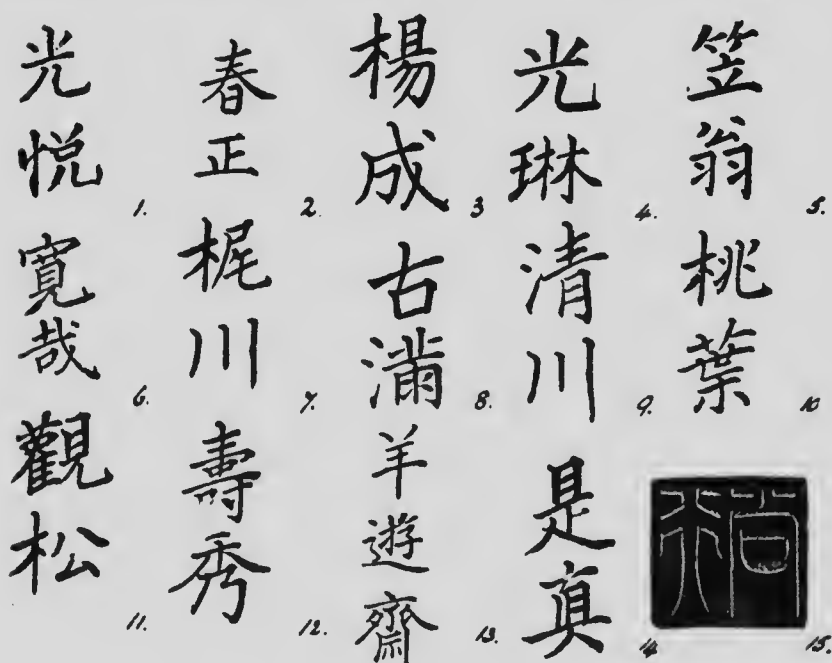 光悦 1.
春正 2.
楊成 3
光琳 4.
笠翁 5.
寛哉 6.
梶川 7.
古満 8.
清川 9.
桃葉 10
觀松 11.
壽秀 12.
羊遊齋 13.
是真 14.
15.